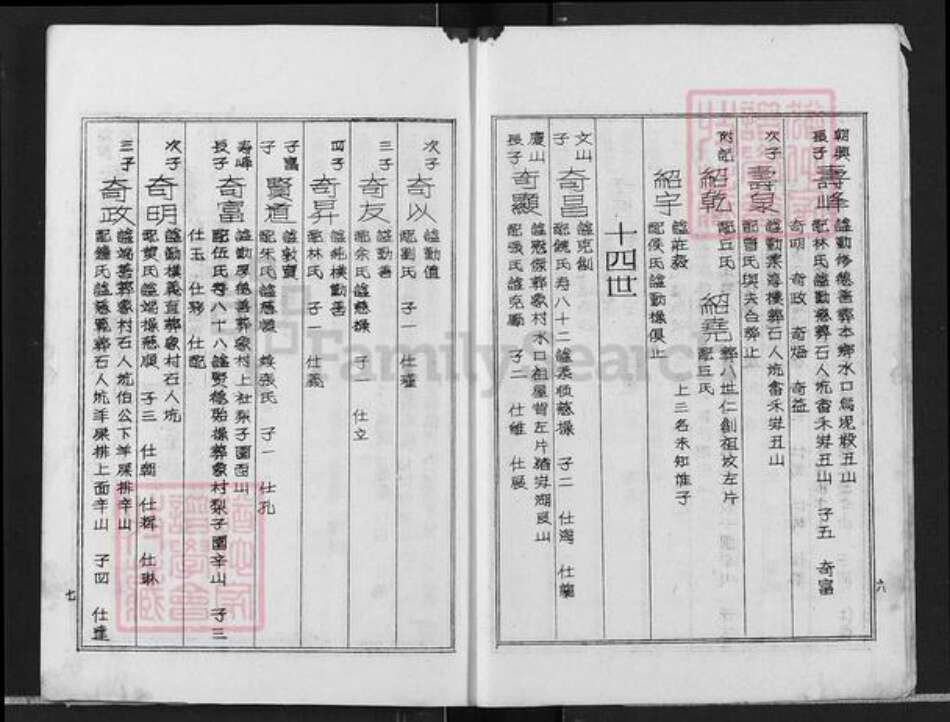 朝興長子 壽峰 諡勤修慈善葬本鄉水口烏坭墩丑山
配林氏諡勤慈葬石人坑畲禾塀丑山 子五 奇富
奇明 奇政 奇 奇益
次子 壽泉 諡勤業 樸葬石人坑畲禾塀丑山
配曾氏與夫合葬止
附記 紹乾 配丘氏 紹堯 葬八世仁創祖坟左片
配丘氏
上三名未知誰子
紹宇 諡莊毅
配侯氏諡勤儉俱止
十四世
文山子 奇昌 諡克創
配饒氏寿八十二諡 慈操 子二 仕灣 仕龍
慶山長子 奇顯 諡 葬象村水口祖屋背左片 湖艮山
配張氏諡克 子二 仕維 仕展
六
次子 奇以 諡勤值
配劉氏 子一 仕瓊
三子 奇友 諡勤善
配余氏諡慈操 子一 仕立
四子 奇昇 諡純樸勤善
配林氏 子一 仕義
子富子 賢道 諡敦寬
配朱氏諡慈順 娭張氏 子一 仕孔
壽峰長子 奇富 諡勤厚慈善葬象村上社梨子園酉山
配伍氏寿八十八諡賢德 葬象村梨子園辛山 子三
仕玉 仕 仕配
次子 奇明 諡勤樸義直葬象村石人坑
配黄氏諡端操慈順 子三 仕朝 仕輝 仕琳
三子 奇政 諡端善葬象村石人坑伯公下羊屎排辛山
配鍾氏諡慈 葬石人坑羊屎排上面辛山 子四 仕達
七
FamilySearch